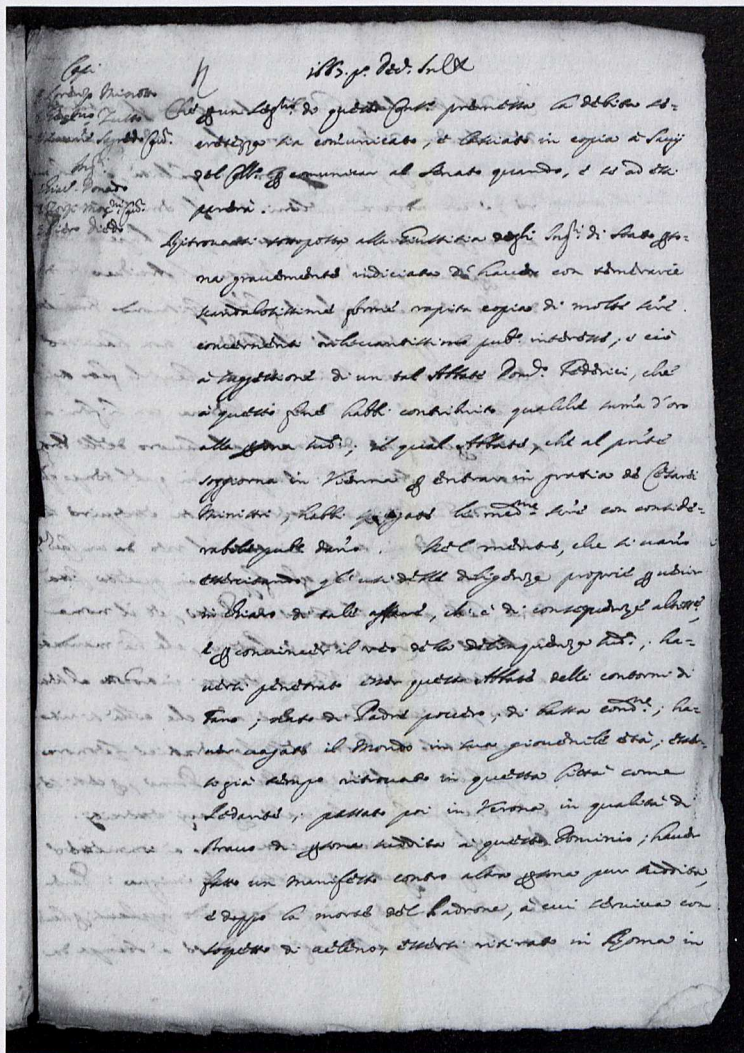 Capi
Lorenzo Minotto
Zulio Zusto
Sagredo Inq.
Inq.ri
Donado
Piero Diedo
1683. p.º Dec. In CX
Che per un Seg.rio di questo Cons.º premessa la debita se-
cretezza sia comunicato, e lasciato in copia a Savij
del Coll.º per comunicar al Senato quando, e se ad essi
parerà.
Ritrovasi sottoposta alla Giustitia degli Inq.ri di Stato perso-
na gravemente indiciata de haver con temerarie
scandalosissime forme rapita copia di molte scre.
concernenti rilevantissimo pub.º interesse, e ciò
a suggestione di un tal Abbate Dom.º Federici, che
a questo fine habbi contribuito qualche suma d'oro
alla persona sud.ª; il qual Abbate, che al pnte
soggiorna in Vienna per entrar in gratia de Cesarei
Ministri, habbi le med.me scre con conside-
rabile pub.º daño. Nel mentre, che si vano
essercitando gl'usi delle deligenze proprie per venir
in chiaro di tale affare, ch'è di consequenze
e per convincer il reo della delinquenza sud.ª, ha-
versi penetrato esser questo Abbate delli contorni di
Fano; nato di Padre povero, di bassa cond.ne; ha-
ver vagato il Mondo in sua giovenile età; esser-
si già tempo ritrovato in questa Città come
; passato poi in Verona in qualità di
Bravo di persona suddita a questo Dominio; haver
fatto un manifesto contro altra persona pur suddita,
e doppo la morte del Padrone, a cui serviva con
sospetto di veleno, essersi ritirato in Roma in